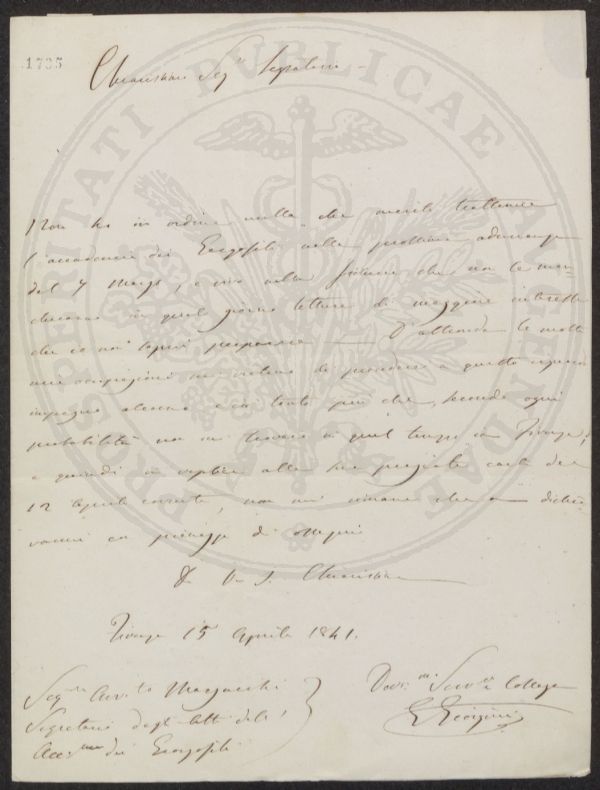 1735
Chiarissimo Sig.re Segretario
Non ho in ordine nulla che meriti trattenere
l'accademia dei Georgofili nella prossima adunanza
del 9 Maggio, e vivo nella che non le man-
cheranno in quel giorno letture di maggiore interesse
che io non saprei preparare — D'altronde le molte
mie occupazioni mi vietano di prendere a questo riguardo
impegno alcuno e ciò tanto più che, secondo ogni
probabilità non mi troverò in quel tempo in Firenze,
e quindi in replica alla sua pregiata carta de
12 Aprile corrente, non mi rimane che a dichia-
rarmi con pienezza di ossequio
Di V. S. Chiarissima
Firenze 15 Aprile 1841.
Sig.re Avv.to
Segretario degli Atti dell'
Acc.mia dei Georgofili
Dev.mo Serv.e Collega